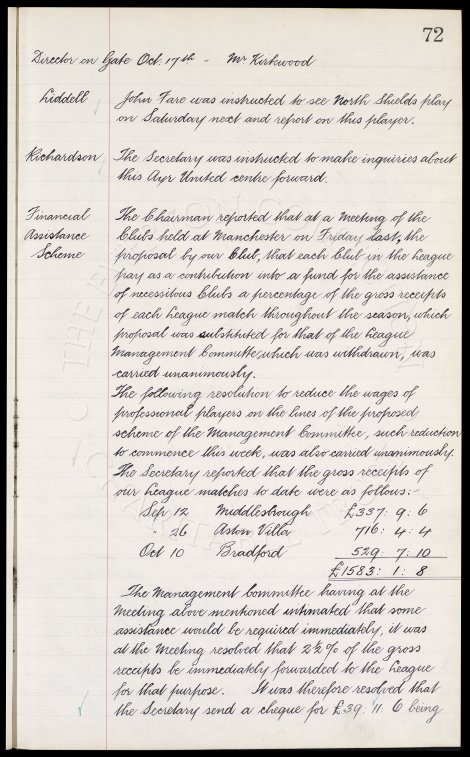 72
Director on Gate Oct. 17th - Mr Kirkwood
Liddell John Fare was instructed to see North Shields play
on Saturday next and report on this player.
Richardson The Secretary was instructed to make inquiries about
this Ayr United centre forward.
Financial The Chairman reported that at a Meeting of the
Assistance Clubs held at Manchester on Friday last, the
Scheme proposal by our Club, that each Club in the League
pay as a contribution into a fund for the assistance
of necessitous Clubs a percentage of the gross receipts
of each League match throughout the season, which
proposal was substituted for that of the League
Management Committee, which was withdrawn, was
carried unanimously.
The following resolution to reduce the wages of
professional players on the lines of the proposed
scheme of the Management Committee, such reduction
to commence this week, was also carried unanimously.
The Secretary reported that the gross receipts of
our League matches to date were as follows:-
Sep 12 Middlesbrough £337: 9: 6
" 26 Aston Villa 716: 4: 4
Oct 10 Bradford 529: 7: 10
£1583: 1: 8
The Management Committee having at the
Meeting above mentioned intimated that some
assistance would be required immediately, it was
at the Meeting resolved that 2½% of the gross
receipts be immediately forwarded to the League
for that purpose. It was therefore resolved that
the Secretary send a cheque for £39: 11: 6 being